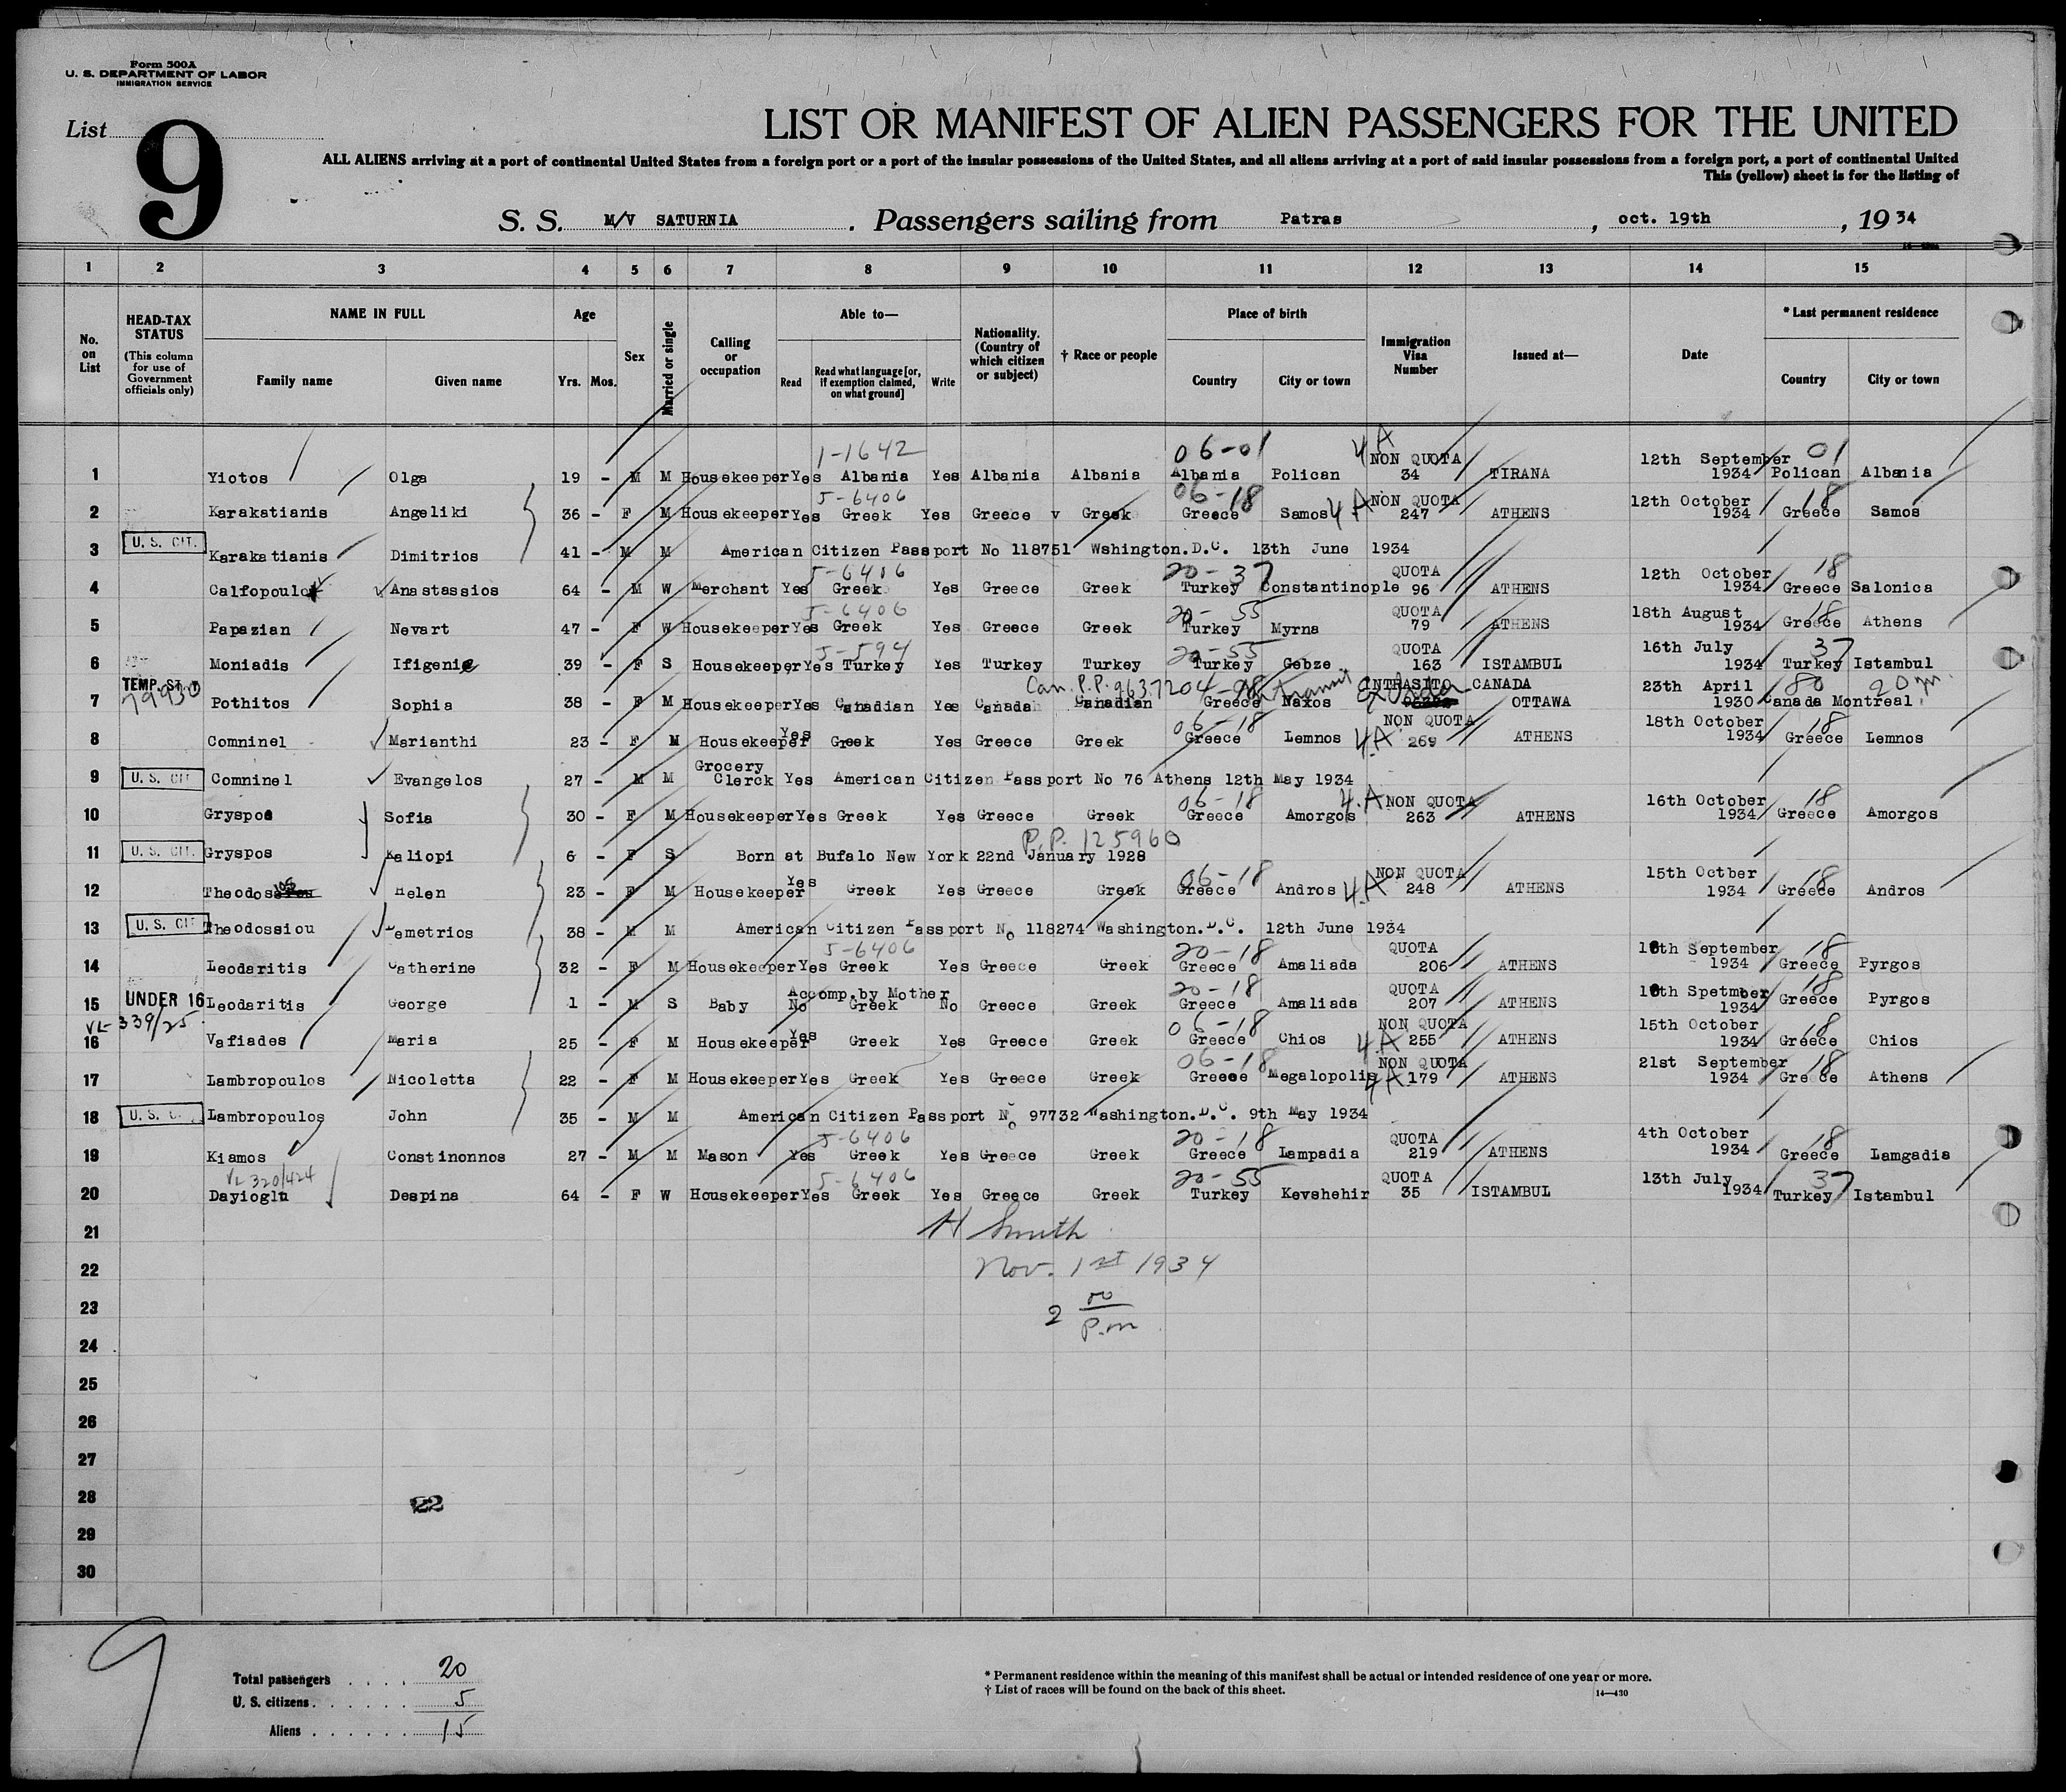 Form 500A
U. S. DEPARTMENT OF LABOR
IMMIGRATION SERVICE
List 9
LIST OR MANIFEST OF ALIEN PASSENGERS FOR THE UNITED
ALL ALIENS arriving at a port of continental United States from a foreign port or a port of the insular possessions of the United States, and all aliens arriving at a port of said insular possessions from a foreign port, a port of continental United
This (yellow) sheet is for the listing of
S. S. M/V SATURNIA . Passengers sailing from Patras , oct. 19th , 19 34
1 2 3 4 5 6 7 8 9 10 11 12 13 14 15
No. on List HEAD-TAX STATUS (This column for use of Government officials only) NAME IN FULL Family name Given name Age Yrs. Mos. Sex Married or single Calling or occupation Able to— Read Read what language [or, if exemption claimed, on what ground] Write Nationality. (Country of which citizen or subject) † Race or people Place of birth Country City or town Immigration Visa Number Issued at— Date * Last permanent residence Country City or town
1-1642 06-01 4A NON QUOTA 12th September 01
1 Yiotos Olga 19 - M M Housekeeper Yes Albania Yes Albania Albania Albania Polican 34 TIRANA 1934 Polican Albania
5-6406 06-18 NON QUOTA 12th October 18
2 Karakatianis Angeliki 36 - F M Housekeeper Yes Greek Yes Greece v Greek Greece Samos 4A 247 ATHENS 1934 Greece Samos
3 U. S. CIT. Karakatianis Dimitrios 41 - M M American Citizen Passport No 118751 Wshington.D.C. 13th June 1934
5-6406 20-37 QUOTA 12th October 18
4 Calfopoulo Anastassios 64 - M W Merchant Yes Greek Yes Greece Greek Turkey Constantinople 96 ATHENS 1934 Greece Salonica
5-6406 20-55 QUOTA 18th August 18
5 Papazian Nevart 47 - F W Housekeeper Yes Greek Yes Greece Greek Turkey Myrna 79 ATHENS 1934 Greece Athens
5-594 20-55 QUOTA 16th July 37
6 Moniadis Ifigenie 39 - F S Housekeeper Yes Turkey Yes Turkey Turkey Turkey Gebze 163 ISTAMBUL 1934 Turkey Istambul
TEMP. ST. 79930 Can. P.P. 9637204 In transit INTRASITO CANADA 23th April 80 20 yr.
7 Pothitos Sophia 38 - F M Housekeeper Yes Canadian Yes Canada Canadian Greece Naxos OTTAWA 1930 Canada Montreal
Yes 06-18 NON QUOTA 18th October 18
8 Comninel Marianthi 23 - F M Housekeeper Greek Yes Greece Greek Greece Lemnos 4A 269 ATHENS 1934 Greece Lemnos
Grocery
9 U. S. CIT Comninel Evangelos 27 - M M Clerck Yes American Citizen Passport No 76 Athens 12th May 1934
06-18 4.A NON QUOTA 16th October 18
10 Gryspos Sofia 30 - F M Housekeeper Yes Greek Yes Greece Greek Greece Amorgos 263 ATHENS 1934 Greece Amorgos
P.P. 125960
11 U. S. CIT. Gryspos Kaliopi 6 - F S Born at Bufalo New York 22nd January 1928
Yes 06-18 NON QUOTA 15th Octber 18
12 Theodos Helen 23 - F M Housekeeper Greek Yes Greece Greek Greece Andros 4.A 248 ATHENS 1934 Greece Andros
13 U. S. CIT Theodossiou Demetrios 38 - M M American Citizen Passport No 118274 Washington.D.C. 12th June 1934
5-6406 20-18 QUOTA 18th September 18
14 Leodaritis Catherine 32 - F M Housekeeper Yes Greek Yes Greece Greek Greece Amaliada 206 ATHENS 1934 Greece Pyrgos
Accomp.by Mother 20-18 QUOTA 18th Spetmber 18
15 UNDER 16 Leodaritis George 1 - M S Baby No Greek No Greece Greek Greece Amaliada 207 ATHENS 1934 Greece Pyrgos
VL-339/25 Yes 06-18 NON QUOTA 15th October 18
16 Vafiades Maria 25 - F M Housekeeper Greek Yes Greece Greek Greece Chios 4A 255 ATHENS 1934 Greece Chios
06-18 NON QUOTA 21st September 18
17 Lambropoulos Nicoletta 22 - F M Housekeeper Yes Greek Yes Greece Greek Greece Megalopolis 4A 179 ATHENS 1934 Greece Athens
18 U. S. C. Lambropoulos John 35 - M M American Citizen Passport No 97732 Washington.D.C. 9th May 1934
5-6406 20-18 QUOTA 4th October 18
19 Kiamos Constinonnos 27 - M M Mason Yes Greek Yes Greece Greek Greece Lampadia 219 ATHENS 1934 Greece Lamgadia
VL 320/424 5-6406 20-55 QUOTA 13th July 37
20 Dayioglu Despina 64 - F W Housekeeper Yes Greek Yes Greece Greek Turkey Kevshehir 35 ISTAMBUL 1934 Turkey Istambul
21 H Smith
22 Nov. 1st 1934
23 2 00 P.m
24
25
26
27
28 22
29
30
9
Total passengers . . . . 20
U. S. citizens . . . . . . 5
Aliens . . . . . . 15
* Permanent residence within the meaning of this manifest shall be actual or intended residence of one year or more.
† List of races will be found on the back of this sheet. 14—430